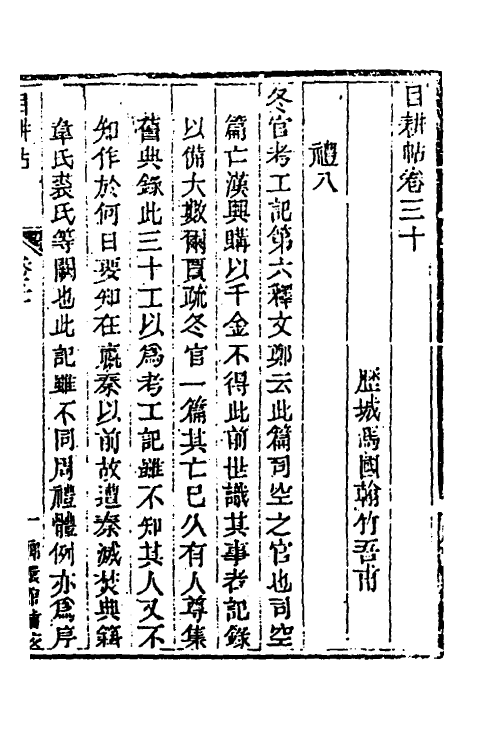 目耕帖卷三十
歷城馬國翰竹吾甫
禮八
冬官考工記第六釋文鄭云此篇司空之官也司空
篇亡漢興購以千金不得此前世識其事者記錄
以備大數爾賈疏冬官一篇其亡已久有人尊集
舊典錄此三十工以為考工記雖不知其人又不
知作於何日要知在嬴秦以前故遭秦滅焚典籍
韋氏裘氏等闕也此記雖不同周禮體例亦為序
目耕帖